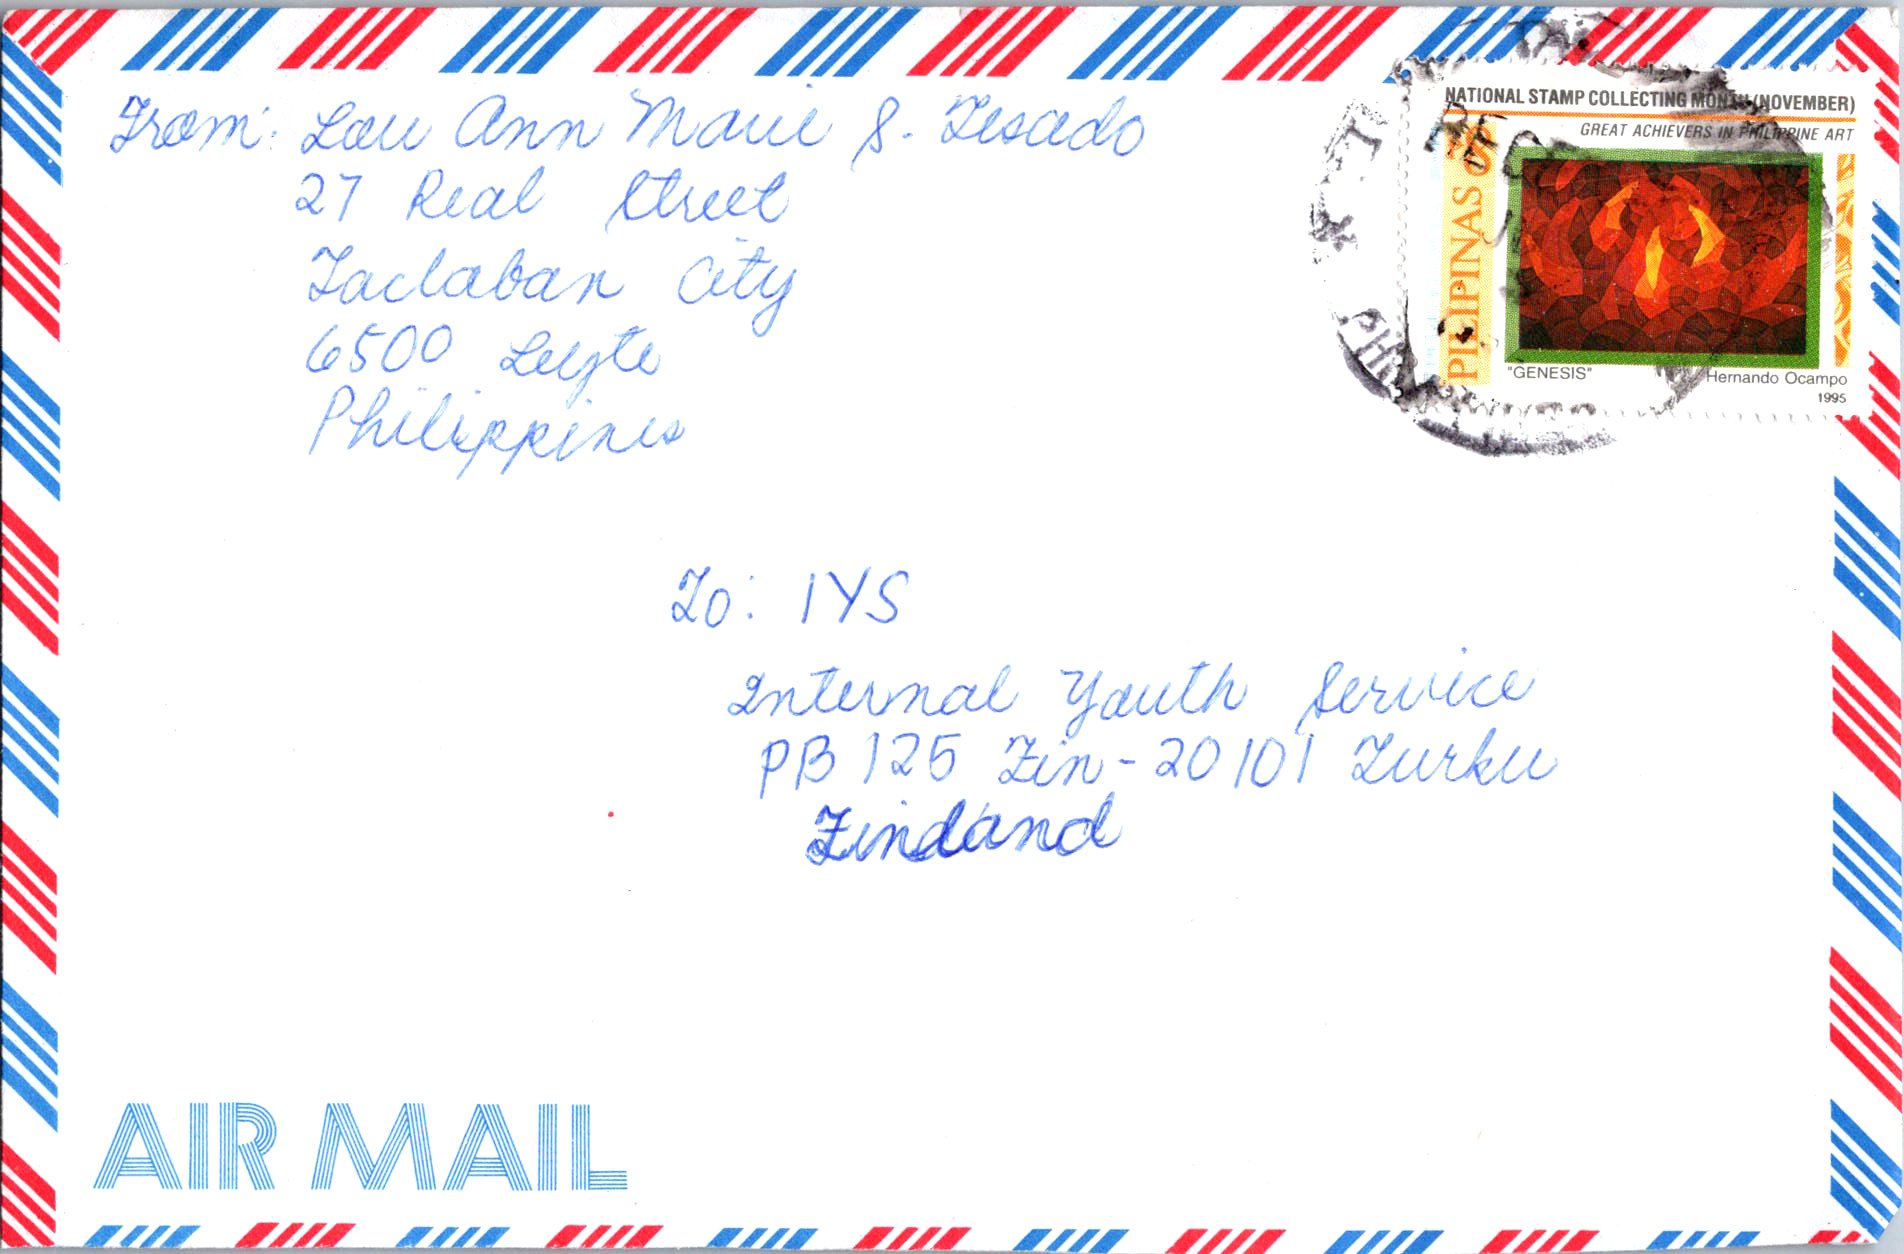 From: Lou Ann Marie S. Tesado
27 Real Street
Tacloban City
6500 Leyte
Philippines
NATIONAL STAMP COLLECTING MONTH (NOVEMBER)
GREAT ACHIEVERS IN PHILIPPINE ART
PILIPINAS
"GENESIS" Hernando Ocampo
1995
To: IYS
Internal Youth Service
PB 125 Fin-20101 Turku
Finland
AIR MAIL